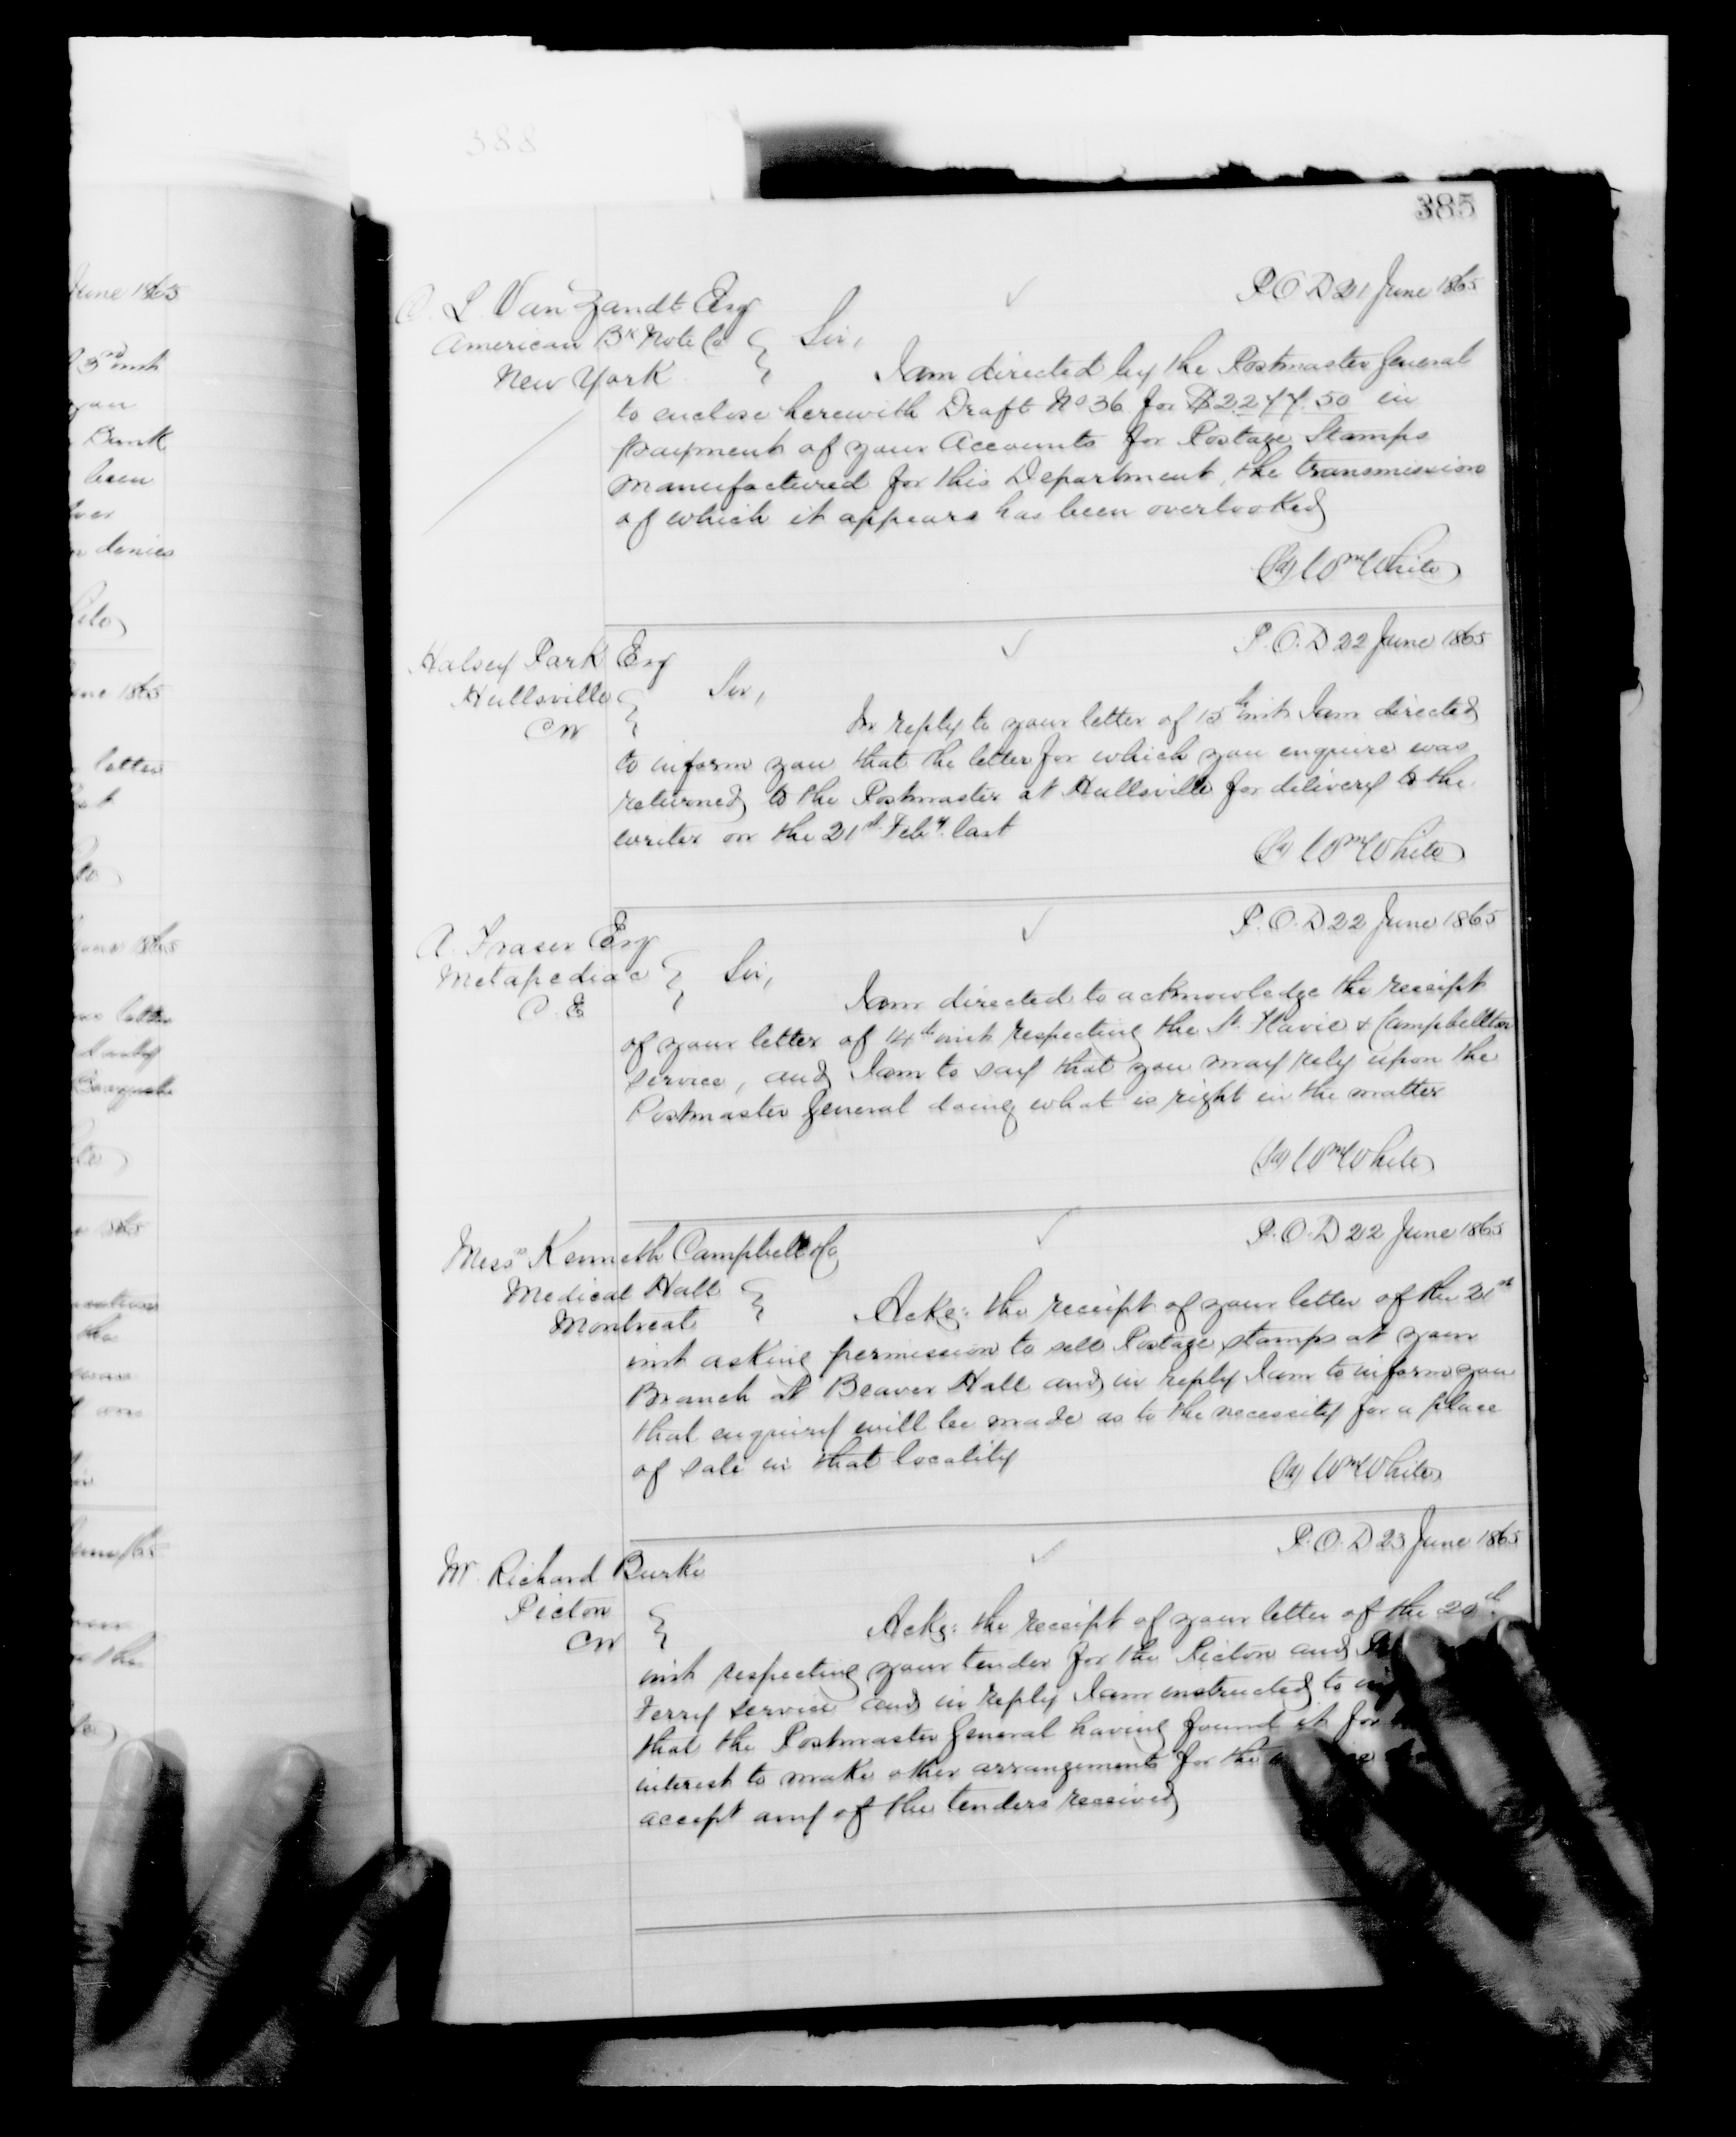 388
385
P.O.D 21 June 1865
C. L. Van Zandt Esq
American Bk Note Co
New York
Sir,
I am directed by the Postmaster General
to enclose herewith Draft No 36 for $2277.50 in
payment of your Accounts for Postage Stamps
manufactured for this Department, the transmission
of which it appears has been overlooked
(Sd) Wm White
P.O.D 22 June 1865
Halsey Park Esq
Hullsville
CW
Sir,
In reply to your letter of 15th inst I am directed
to inform you that the letter for which you enquire was
returned to the Postmaster at Hullsville for delivery to the
writer on the 21st Feby. last
(Sd) Wm White
P.O.D 22 June 1865
A. Fraser Esq
Metapediac
C.E
Sir,
I am directed to acknowledge the receipt
of your letter of 14th inst respecting the St. Flavie & Campbellton
service, and I am to say that you may rely upon the
Postmaster General doing what is right in the matter
(Sd) Wm White
P.O.D 22 June 1865
Messrs Kenneth Campbell & Co
Medical Hall
Montreal
Ackg: the receipt of your letter of the 21st
inst asking permission to sell Postage stamps at your
Branch at Beaver Hall and in reply I am to inform you
that enquiry will be made as to the necessity for a place
of sale in that locality
(Sd) Wm White
P.O.D 23 June 1865
Mr. Richard Burke
Picton
CW
Ackg: the receipt of your letter of the 20th
inst respecting your tender for the Picton and
Ferry service and in reply I am instructed to
that the Postmaster General having found it for
interest to make other arrangements for the
accept any of the tenders received